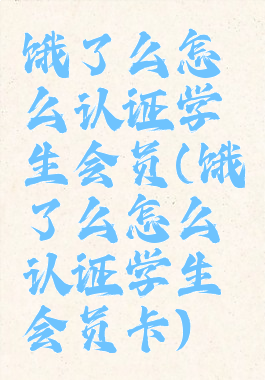 饿了么怎
么认证学
生会员(饿
了么怎么
认证学生
会员卡)